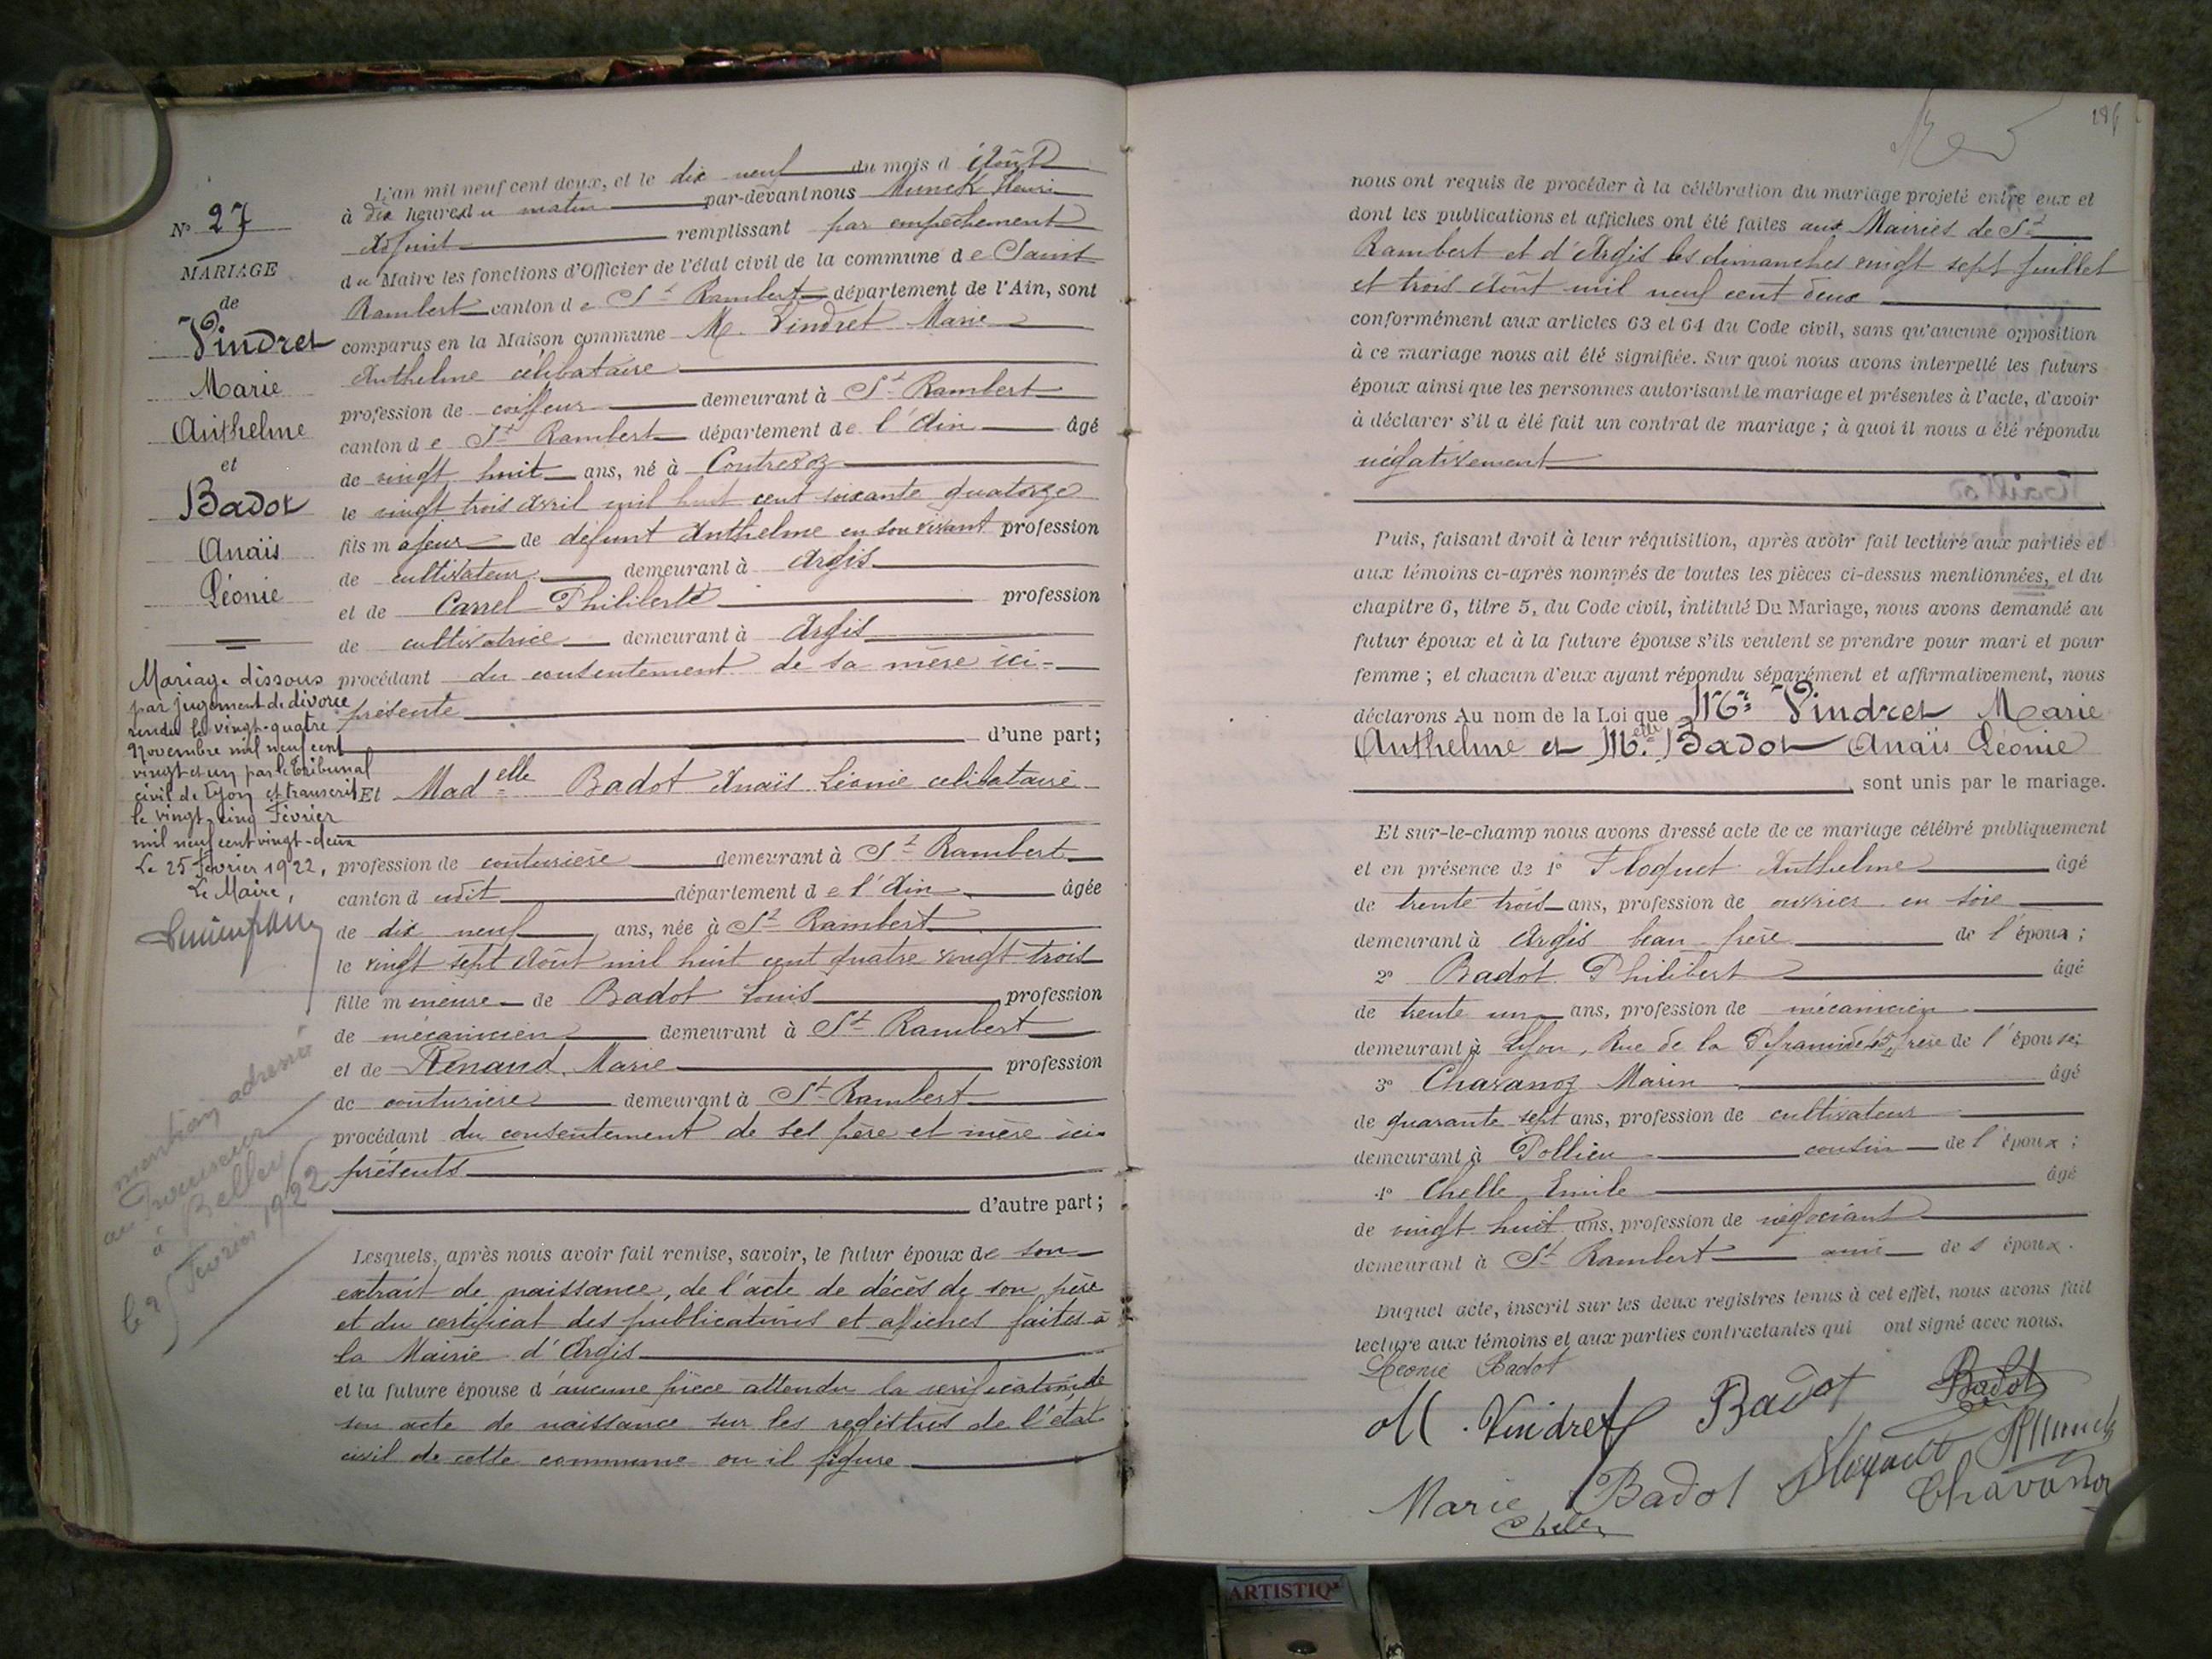 L'an mil neuf cent deux, et le dix neuf du mois d'Août
à dix heures du matin par-devant nous Munck Henri
Adjoint remplissant par empêchement
du Maire les fonctions d'Officier de l'état civil de la commune de Saint
Rambert canton de St Rambert département de l'Ain, sont
comparus en la Maison commune M. Vindret Marie
Anthelme célibataire
profession de coiffeur demeurant à St Rambert
canton de St Rambert département de l'Ain âgé
de vingt huit ans, né à Contrevoz
le vingt trois avril mil huit cent soixante quatorze
fils majeur de défunt Anthelme en son vivant profession
de cultivateur demeurant à Argis
et de Carrel Philiberte profession
de cultivatrice demeurant à Argis
procédant du consentement de sa mère ici-
présente
d'une part;
Et Mad elle Badot Anaïs Léonie célibataire
profession de couturière demeurant à St Rambert
canton dudit département de l'Ain âgée
de dix neuf ans, née à St Rambert
le vingt sept Août mil huit cent quatre vingt trois
fille mineure de Badot Louis profession
de mécanicien demeurant à St Rambert
et de Renaud Marie profession
de couturière demeurant à St Rambert
procédant du consentement de ses père et mère ici-
présents
d'autre part;
Lesquels, après nous avoir fait remise, savoir, le futur époux de son
extrait de naissance, de l'acte de décès de son père
et du certificat des publications et affiches faites à
la Mairie d'Argis
et la future épouse d'aucune pièce attendu la vérification de
son acte de naissance sur les registres de l'état
civil de cette commune ou il figure
N° 27
MARIAGE
de
Vindret
Marie
Anthelme
et
Badot
Anaïs
Léonie
Mariage dissous
par jugement de divorce
rendu le vingt-quatre
Novembre mil neuf cent
vingt et un par le Tribunal
civil de Lyon et transcrit
le vingt-cinq Février
mil neuf cent vingt-deux
Le 25 Février 1922,
Le Maire,
mention adressée
au Procureur
à Belley
le 25 Février 1922
nous ont requis de procéder à la célébration du mariage projeté entre eux et
dont les publications et affiches ont été faites aux Mairies de St
Rambert et d'Argis les dimanches vingt sept juillet
et trois Août mil neuf cent deux
conformément aux articles 63 et 64 du Code civil, sans qu'aucune opposition
à ce mariage nous ait été signifiée. Sur quoi nous avons interpellé les futurs
époux ainsi que les personnes autorisant le mariage et présentes à l'acte, d'avoir
à déclarer s'il a été fait un contrat de mariage; à quoi il nous a été répondu
négativement
Puis, faisant droit à leur réquisition, après avoir fait lecture aux parties et
aux témoins ci-après nommés de toutes les pièces ci-dessus mentionnées, et du
chapitre 6, titre 5, du Code civil, intitulé Du Mariage, nous avons demandé au
futur époux et à la future épouse s'ils veulent se prendre pour mari et pour
femme; et chacun d'eux ayant répondu séparément et affirmativement, nous
déclarons Au nom de la Loi que Mr Vindret Marie
Anthelme et M.elle Badot Anaïs Léonie
sont unis par le mariage.
Et sur-le-champ nous avons dressé acte de ce mariage célébré publiquement
et en présence de 1° Floquet Anthelme âgé
de trente trois ans, profession de ouvrier en soie
demeurant à Argis beau-frère de l'époux;
2° Badot Philibert âgé
de trente un ans, profession de mécanicien
demeurant à Lyon, Rue de la Pyramide 45, frère de l'épouse;
3° Chavanoz Marin âgé
de quarante sept ans, profession de cultivateur
demeurant à Pollieu cousin de l'époux;
4° Chelle Emile âgé
de vingt huit ans, profession de négociant
demeurant à St Rambert ami des époux.
Duquel acte, inscrit sur les deux registres tenus à cet effet, nous avons fait
lecture aux témoins et aux parties contractantes qui ont signé avec nous.
Léonie Badot
M. Vindret Badot Badot
Floquet HMunck
Marie Badot Chavanoz
Chelle
ARTISTIQ